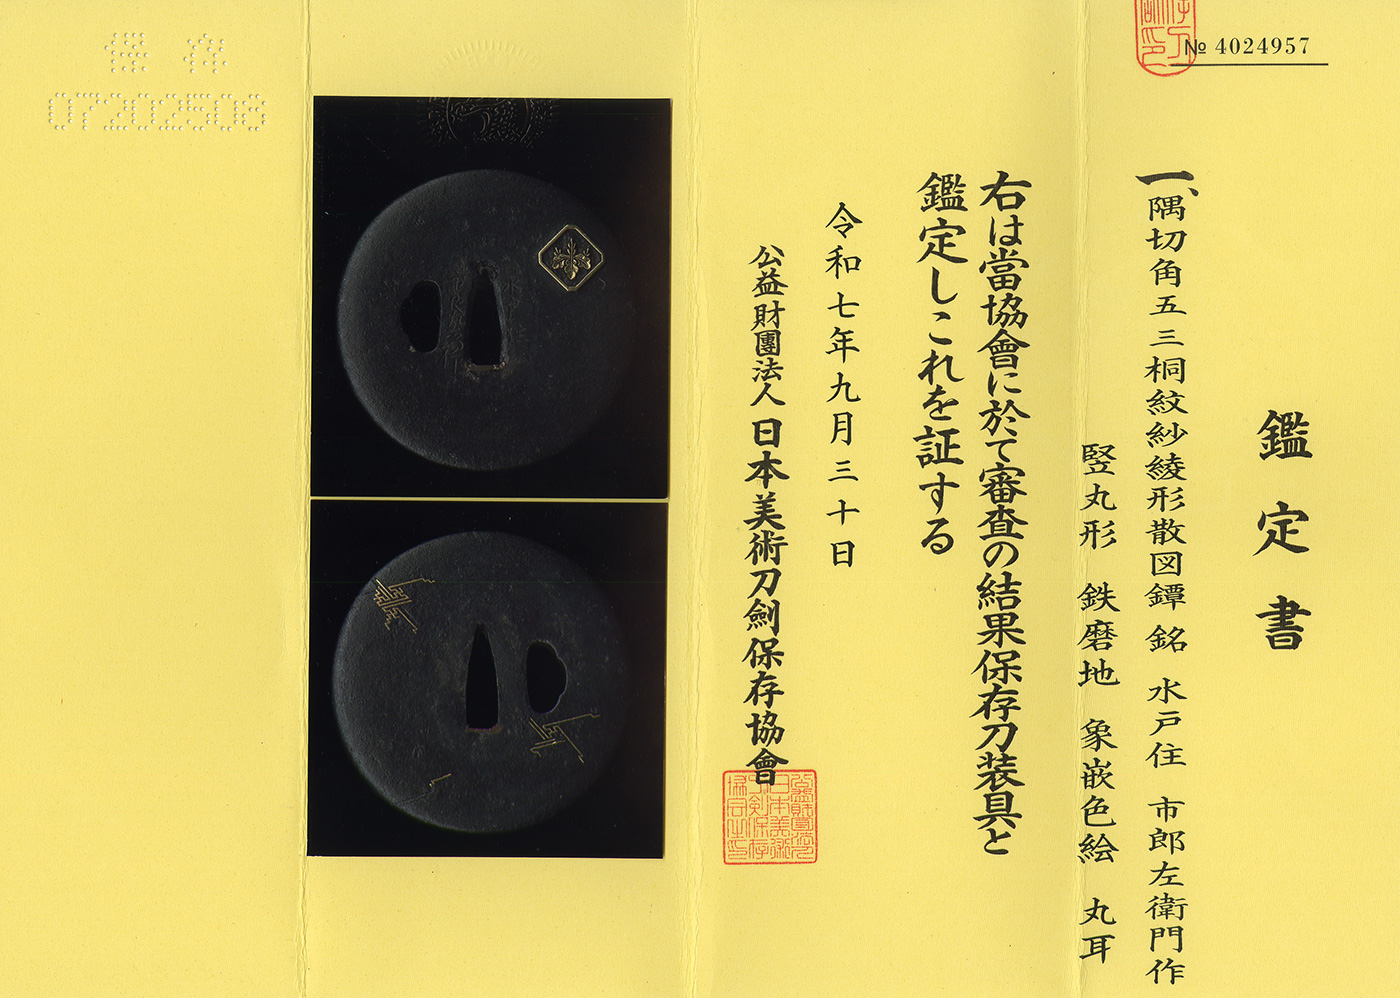 № 4024957
鑑定書
一、隅切角五三桐紋紗綾形散図鐔 銘 水戸住 市郎左衛門作
竪丸形 鉄磨地 象嵌色絵 丸耳
右は當協會に於て審査の結果保存刀装具と
鑑定しこれを証する
令和七年九月三十日
公益財團法人 日本美術刀劍保存協會
保存
07202508